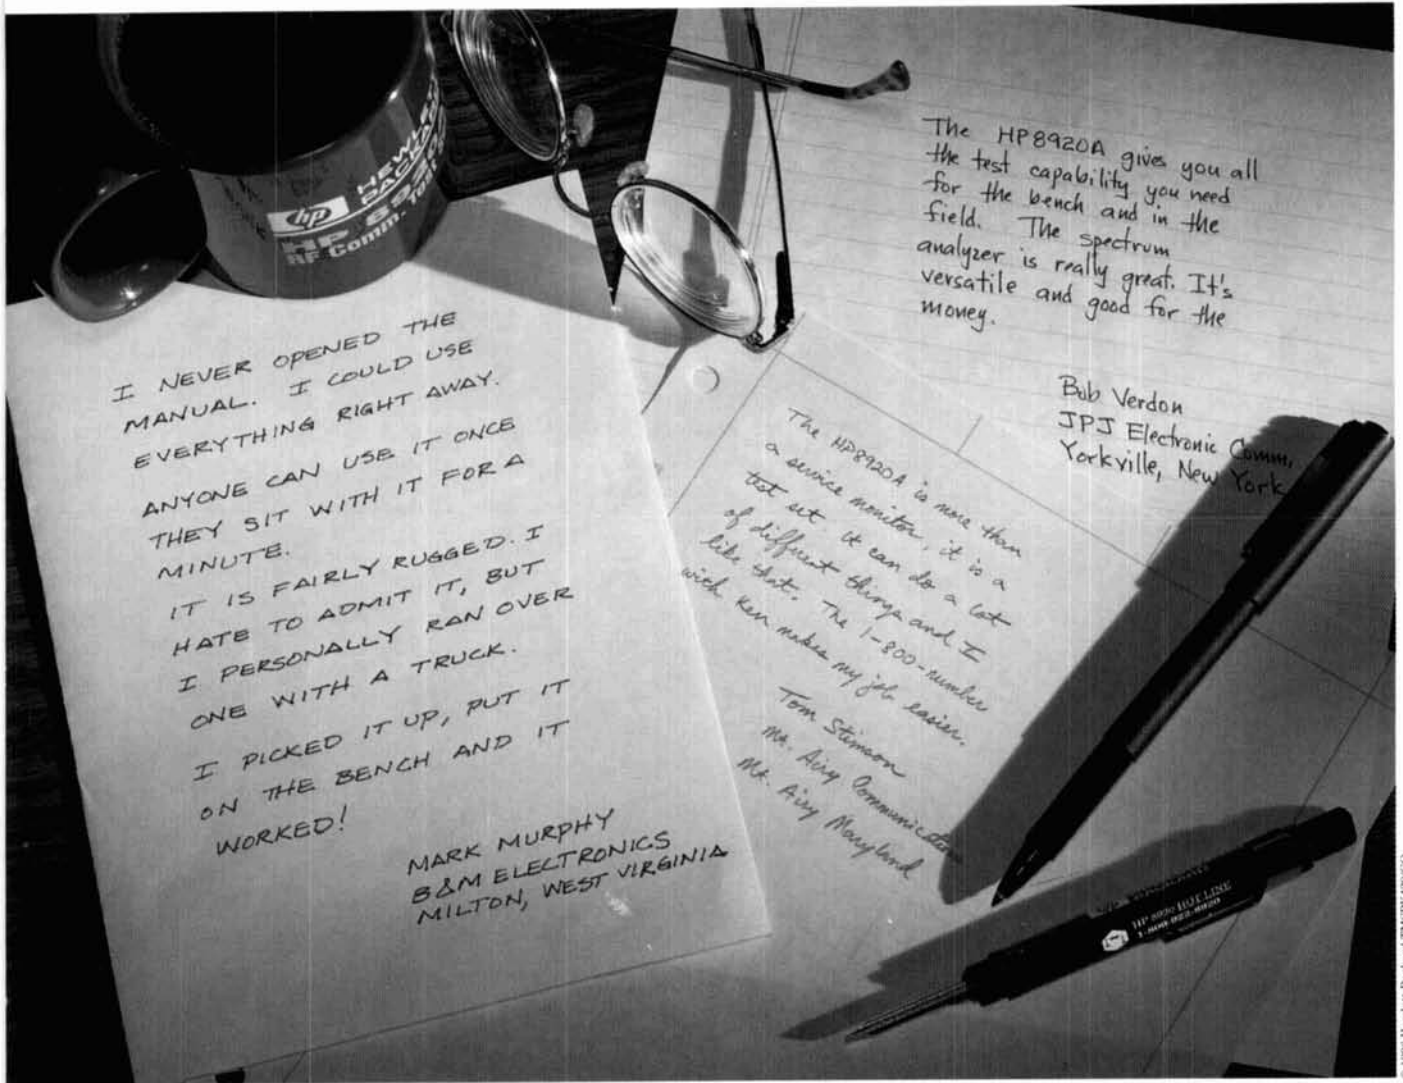 HEWLETT
PACKARD
hp
HP 89
RF Comm.
I NEVER OPENED THE
MANUAL. I COULD USE
EVERYTHING RIGHT AWAY.
ANYONE CAN USE IT ONCE
THEY SIT WITH IT FOR A
MINUTE.
IT IS FAIRLY RUGGED. I
HATE TO ADMIT IT, BUT
I PERSONALLY RAN OVER
ONE WITH A TRUCK.
I PICKED IT UP, PUT IT
ON THE BENCH AND IT
WORKED!
MARK MURPHY
B&M ELECTRONICS
MILTON, WEST VIRGINIA
The HP8920A gives you all
the test capability you need
for the bench and in the
field. The spectrum
analyzer is really great. It's
versatile and good for the
money.
Bob Verdon
JPJ Electronic Comm,
Yorkville, New York
The HP8920A is more than
a service monitor, it is a
test set. It can do a lot
of different things and I
like that. The 1-800-number
with Ken makes my job easier.
Tom Stimson
Mt. Airy Communication
Mt. Airy Maryland
HP 8920 HOTLINE
1-800-922-8920